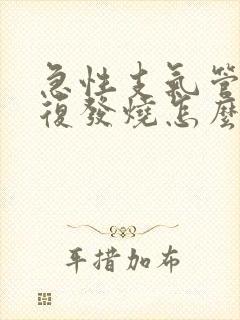 急性支氣管
復發燒怎麼
平措加布